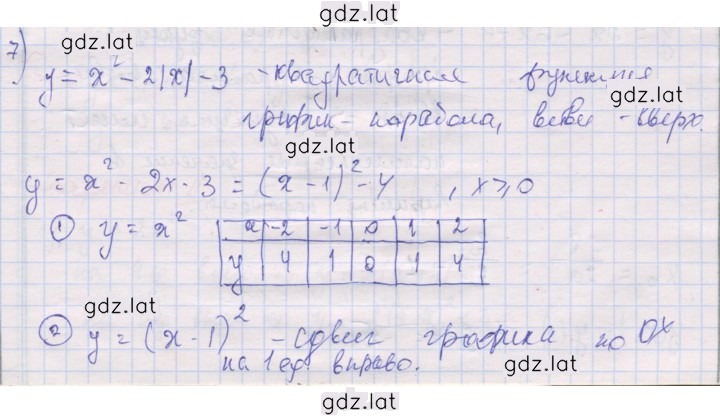 gdz.lat
7)
gdz.lat
y = x² - 2|x| - 3 - квадратичная функция
gdz.lat
график - парабола, ветви - вверх.
gdz.lat
y = x² - 2x - 3 = (x - 1)² - 4 , x ≥ 0
gdz.lat
① y = x²
x -2 -1 0 1 2
y 4 1 0 1 4
gdz.lat
gdz.lat
② y = (x - 1)² - сдвиг графика по OX
на 1 ед. вправо.
gdz.lat
gdz.lat
gdz.lat